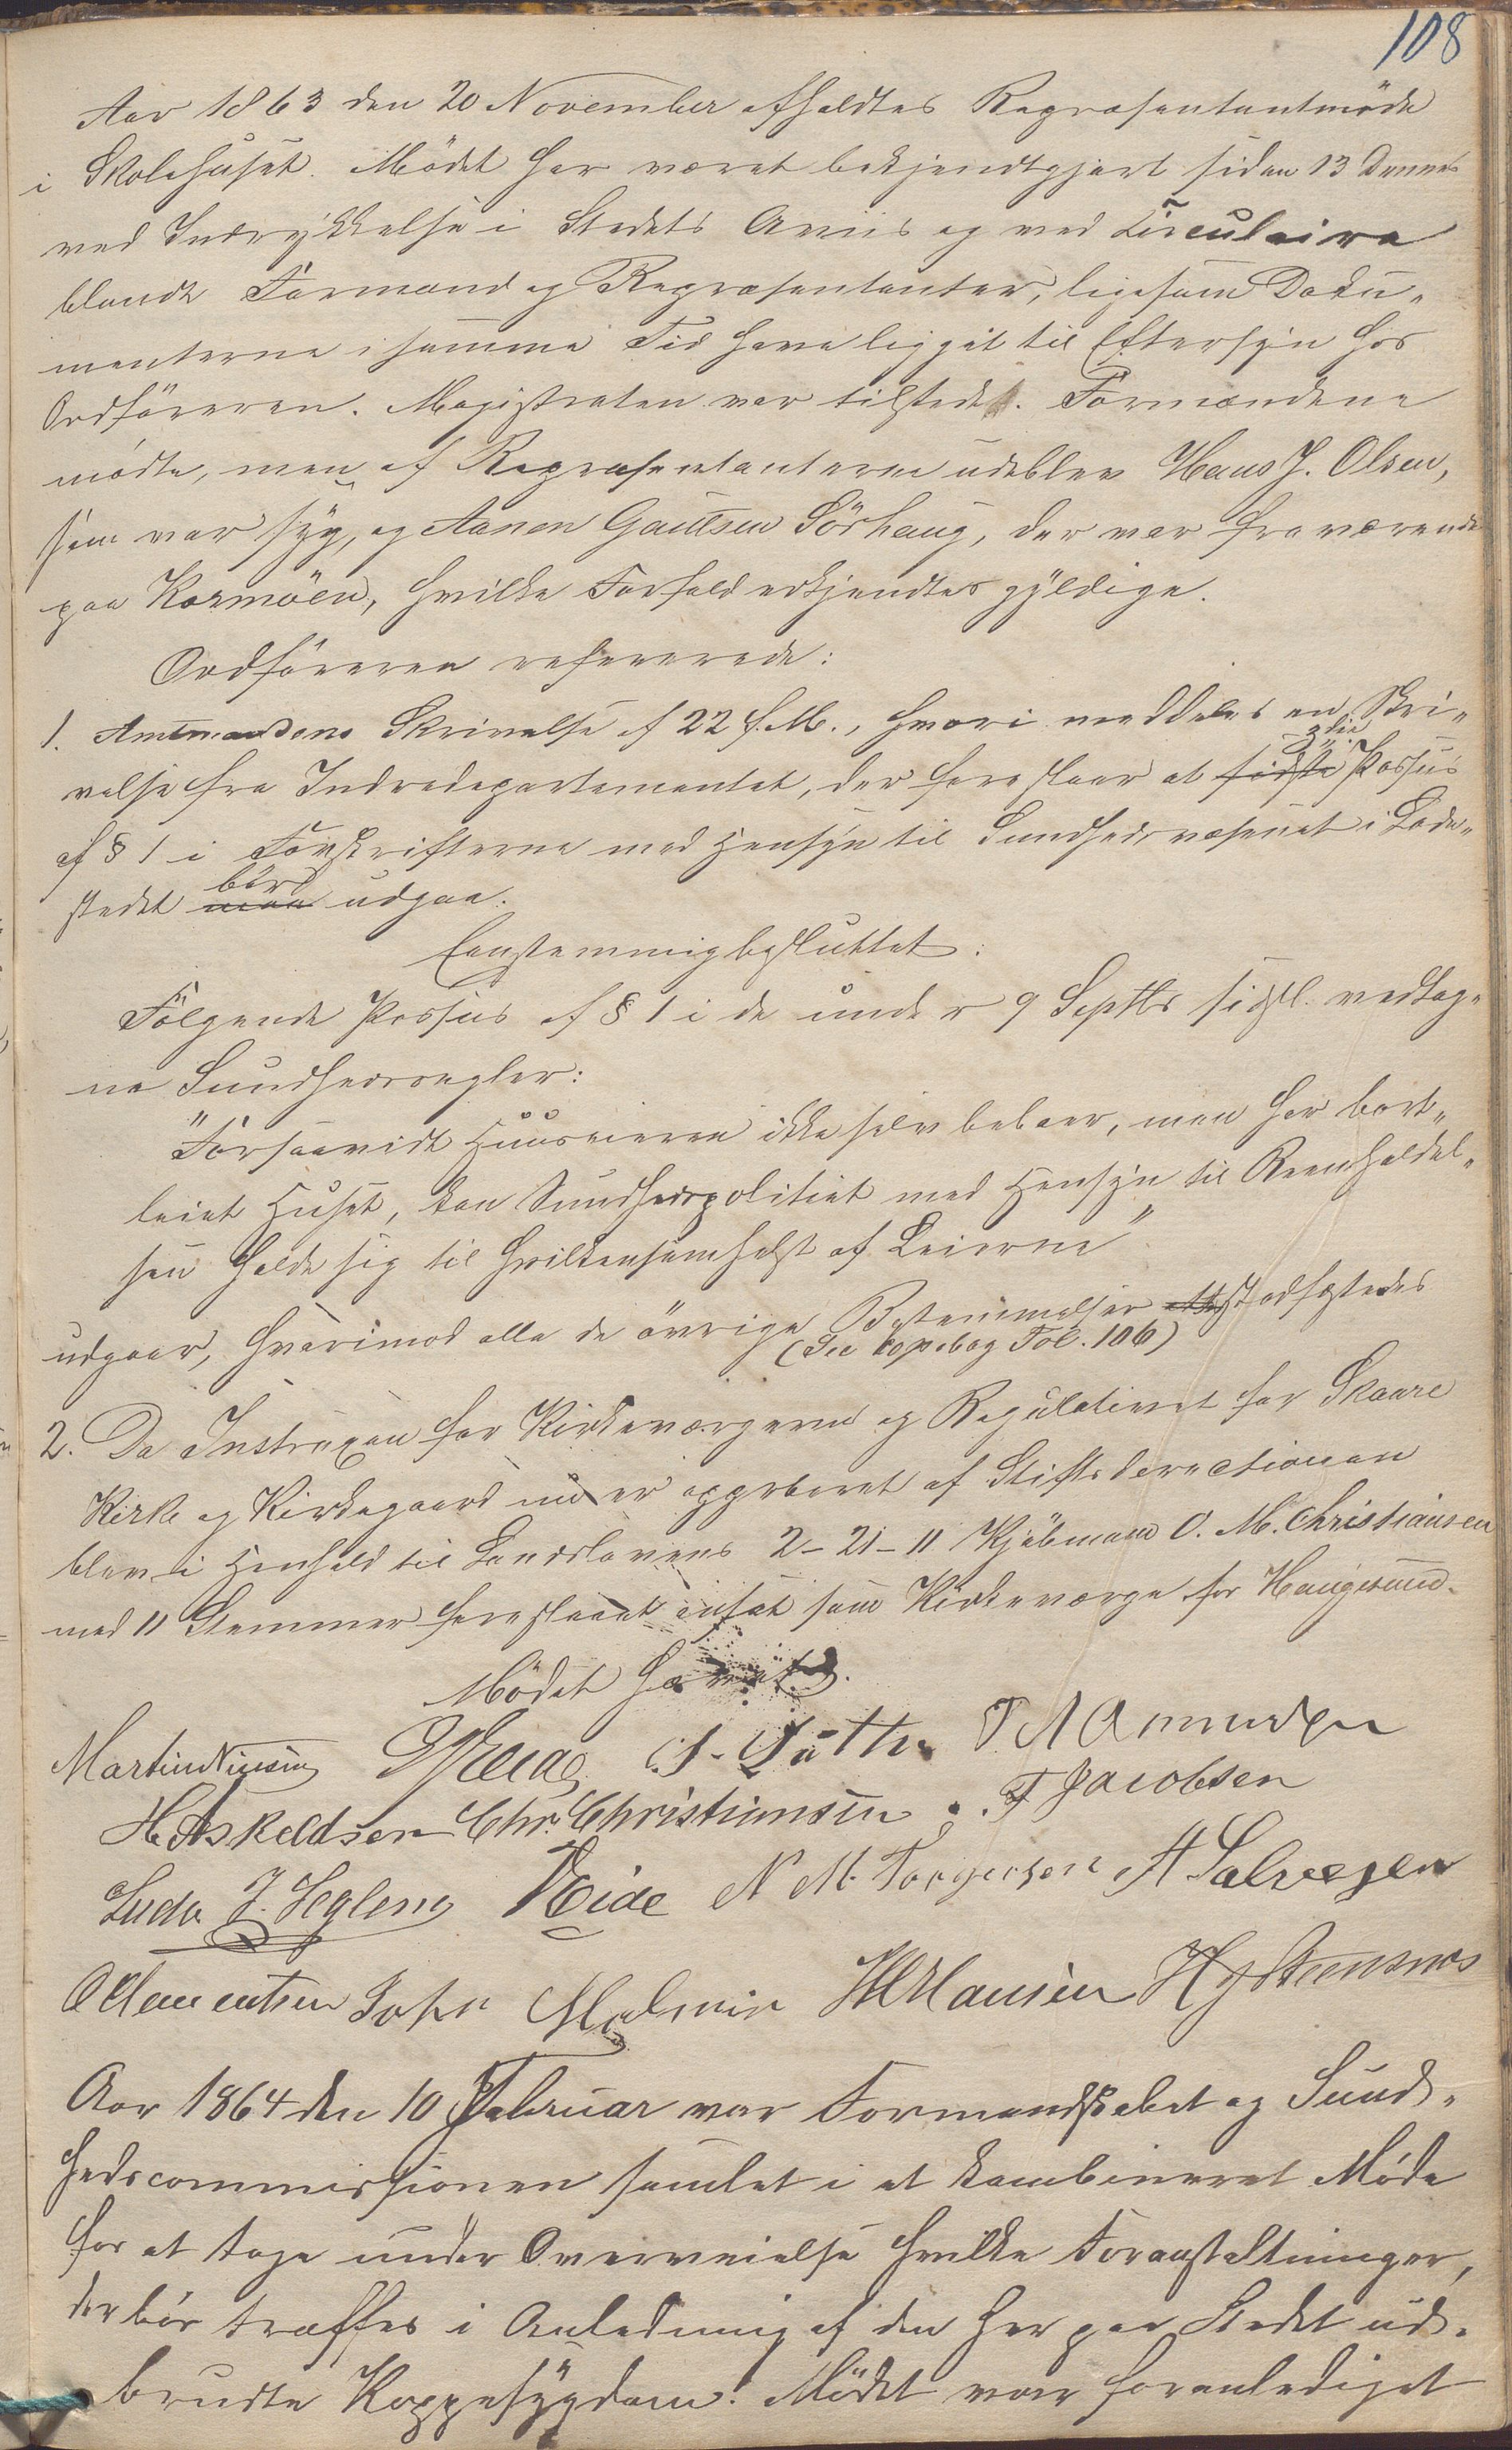 108
Aar 1863 den 20 November afholdtes Repræsentantmöde
i Skolehuset. Mödet har været bekjendtgjort siden 13 Dennes
ved Indrykkelse i Stedets Aviis og ved Circulaire
blandt Formænd og Repræsentanter, ligesom Docu-
menterne i samme Tid have ligget til Eftersyn hos
Ordföreren. Magistraten var tilstede. Formændene
mödte, men af Repræsentanterne udeblev Hans J. Olsen,
som var syg, og Aanen Gautsen Sörhaug, der var fraværende
paa Karmöen, hvilke Forfald erkjendtes gyldige.
Ordföreren refererede:
1. Amtmandens Skrivelse af 22 f. M., hvori meddeles en Skri-
velse fra Indredepartementet, der foreslaar at sidste 3die Passus
af § 1 i Forskrifterne med Hensyn til Sundhedsvæsenet i Lade-
stedet maa bör udgaa.
Eenstemmig besluttet:
Fölgende Passus af § 1 i de under 9 Septbr sidstl. vedtag-
ne Sundhedsregler:
"Forsaavidt Huuseieren ikke selv beboer, men har bort-
leiet Huset, kan Sundhedspolitiet med Hensyn til Reenholdel-
sen holde sig til hvilkensomhelst af Leierne"
udgaar, hvorimod alle de övrige Bestemmelser stadfæstedes
(See Copiebog Fol. 106)
2. Da Instruxen for Kirkeværgerne og Regulativet for Skaare
Kirke og Kirkegaard nu er approberet af Stiftsdirectionen
blev i Henhold til Landslovens 2-21-11 Kjöbmand O. M. Christiansen
med 11 Stemmer foreslaaet ansat som Kirkeværge for Haugesund.
Mödet hævet.
Martin Nissing C. J. Döthe T. N Amundsen
H. Askeldsen Chr. Christiansen. T Jacobsen
Ludv. J. Hegleng Eide N M. Torgersen A Salvesen
O Clementsen John Malmin H Hansen H G Steensnæs
Aar 1864 den 10 Februar var Formandskabet og Sund-
hedscommissionen samlet i et kombineret Möde
for at tage under Overveielse hvilke Foranstaltninger,
der bör træffes i Anledning af den her paa Stedet ud-
brudte Koppesygdom. Mödet var foranlediget